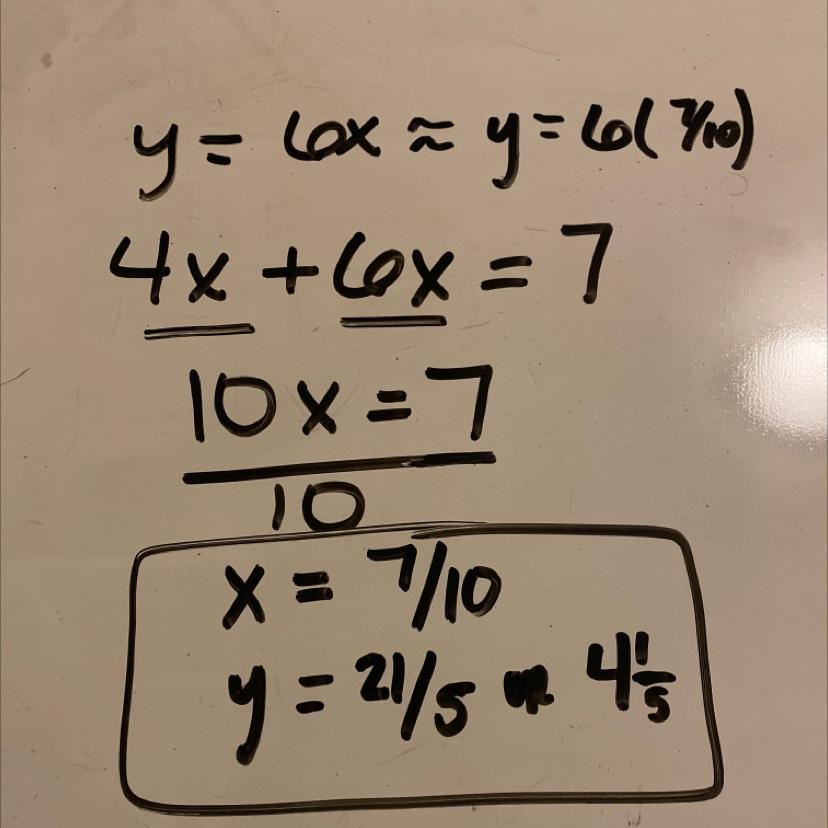 y = 6x ≈ y = 6(7/10)
4x + 6x = 7
10x = 7
10
x = 7/10
y = 21/5 or 4 1/5